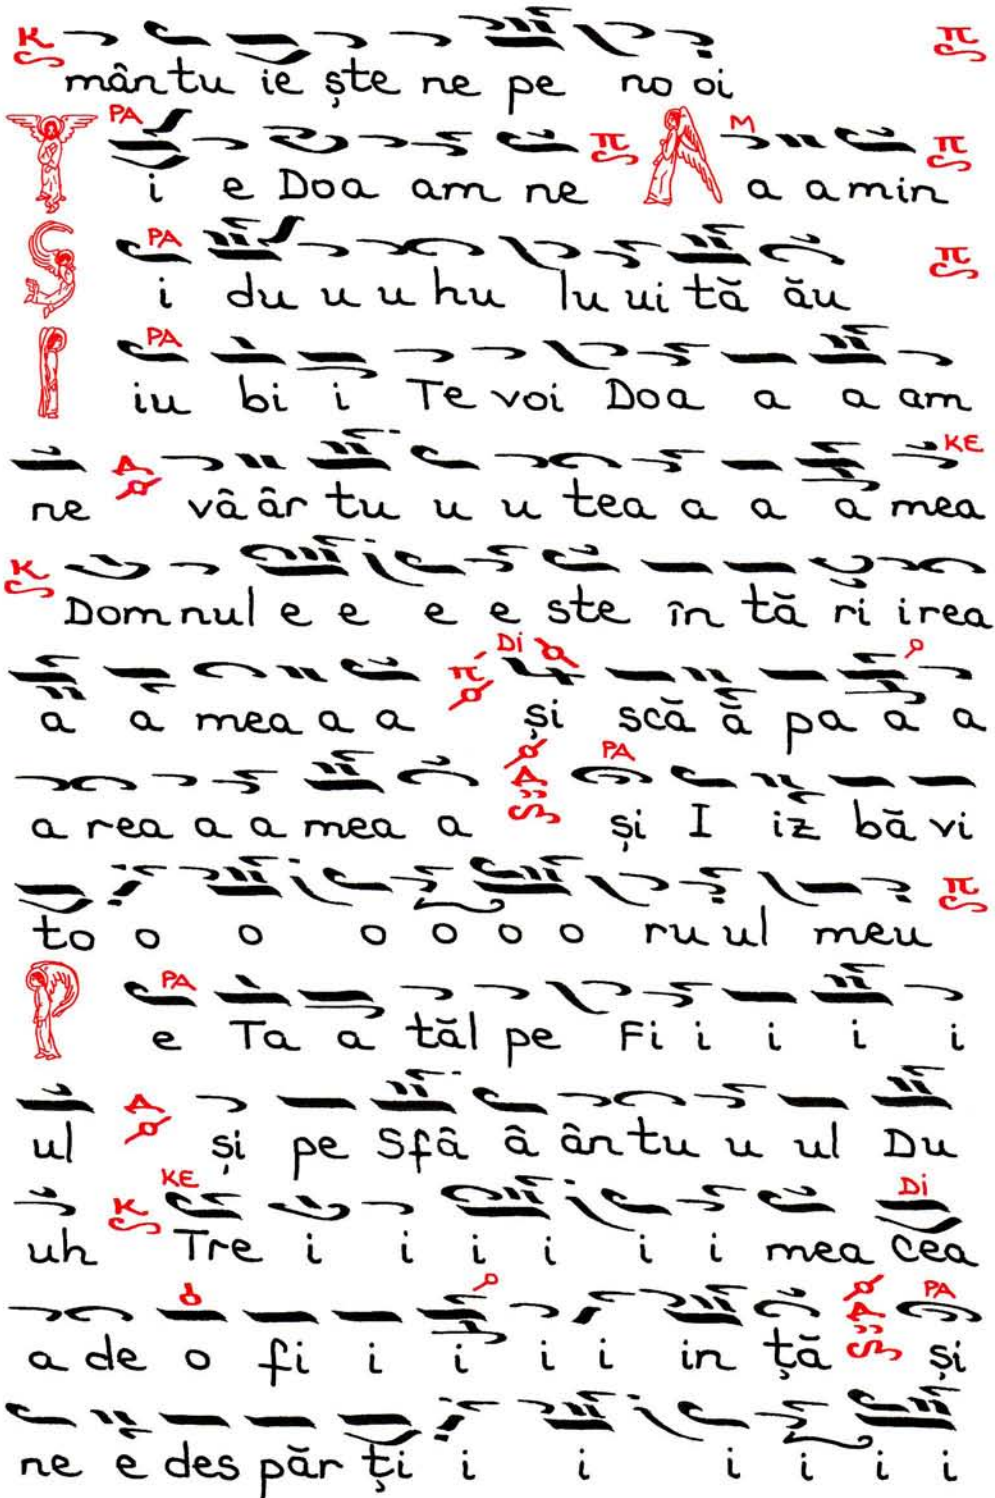 K mân tu ie ște ne pe no oi π
PA M
Ț i e Doa am ne π A a a min π
PA
Ș i du u u hu lu ui tă ău π
PA
I iu bi i Te voi Doa a a am
KE
ne Δ vâ âr tu u u tea a a a mea
K Dom nul e e e e ste în tă ri i rea
DI
a a mea a a π și scă ă pa a a
PA
a rea a a mea a Δ și I iz bă vi
to o o o o o o ru ul meu π
PA
P e Ta a tăl pe Fi i i i i
ul Δ și pe Sfâ â ân tu u ul Du
KE DI
uh K Tre i i i i i i mea cea
PA
a de o fi i i i i in ță Δ și
ne e des păr ți i i i i i i